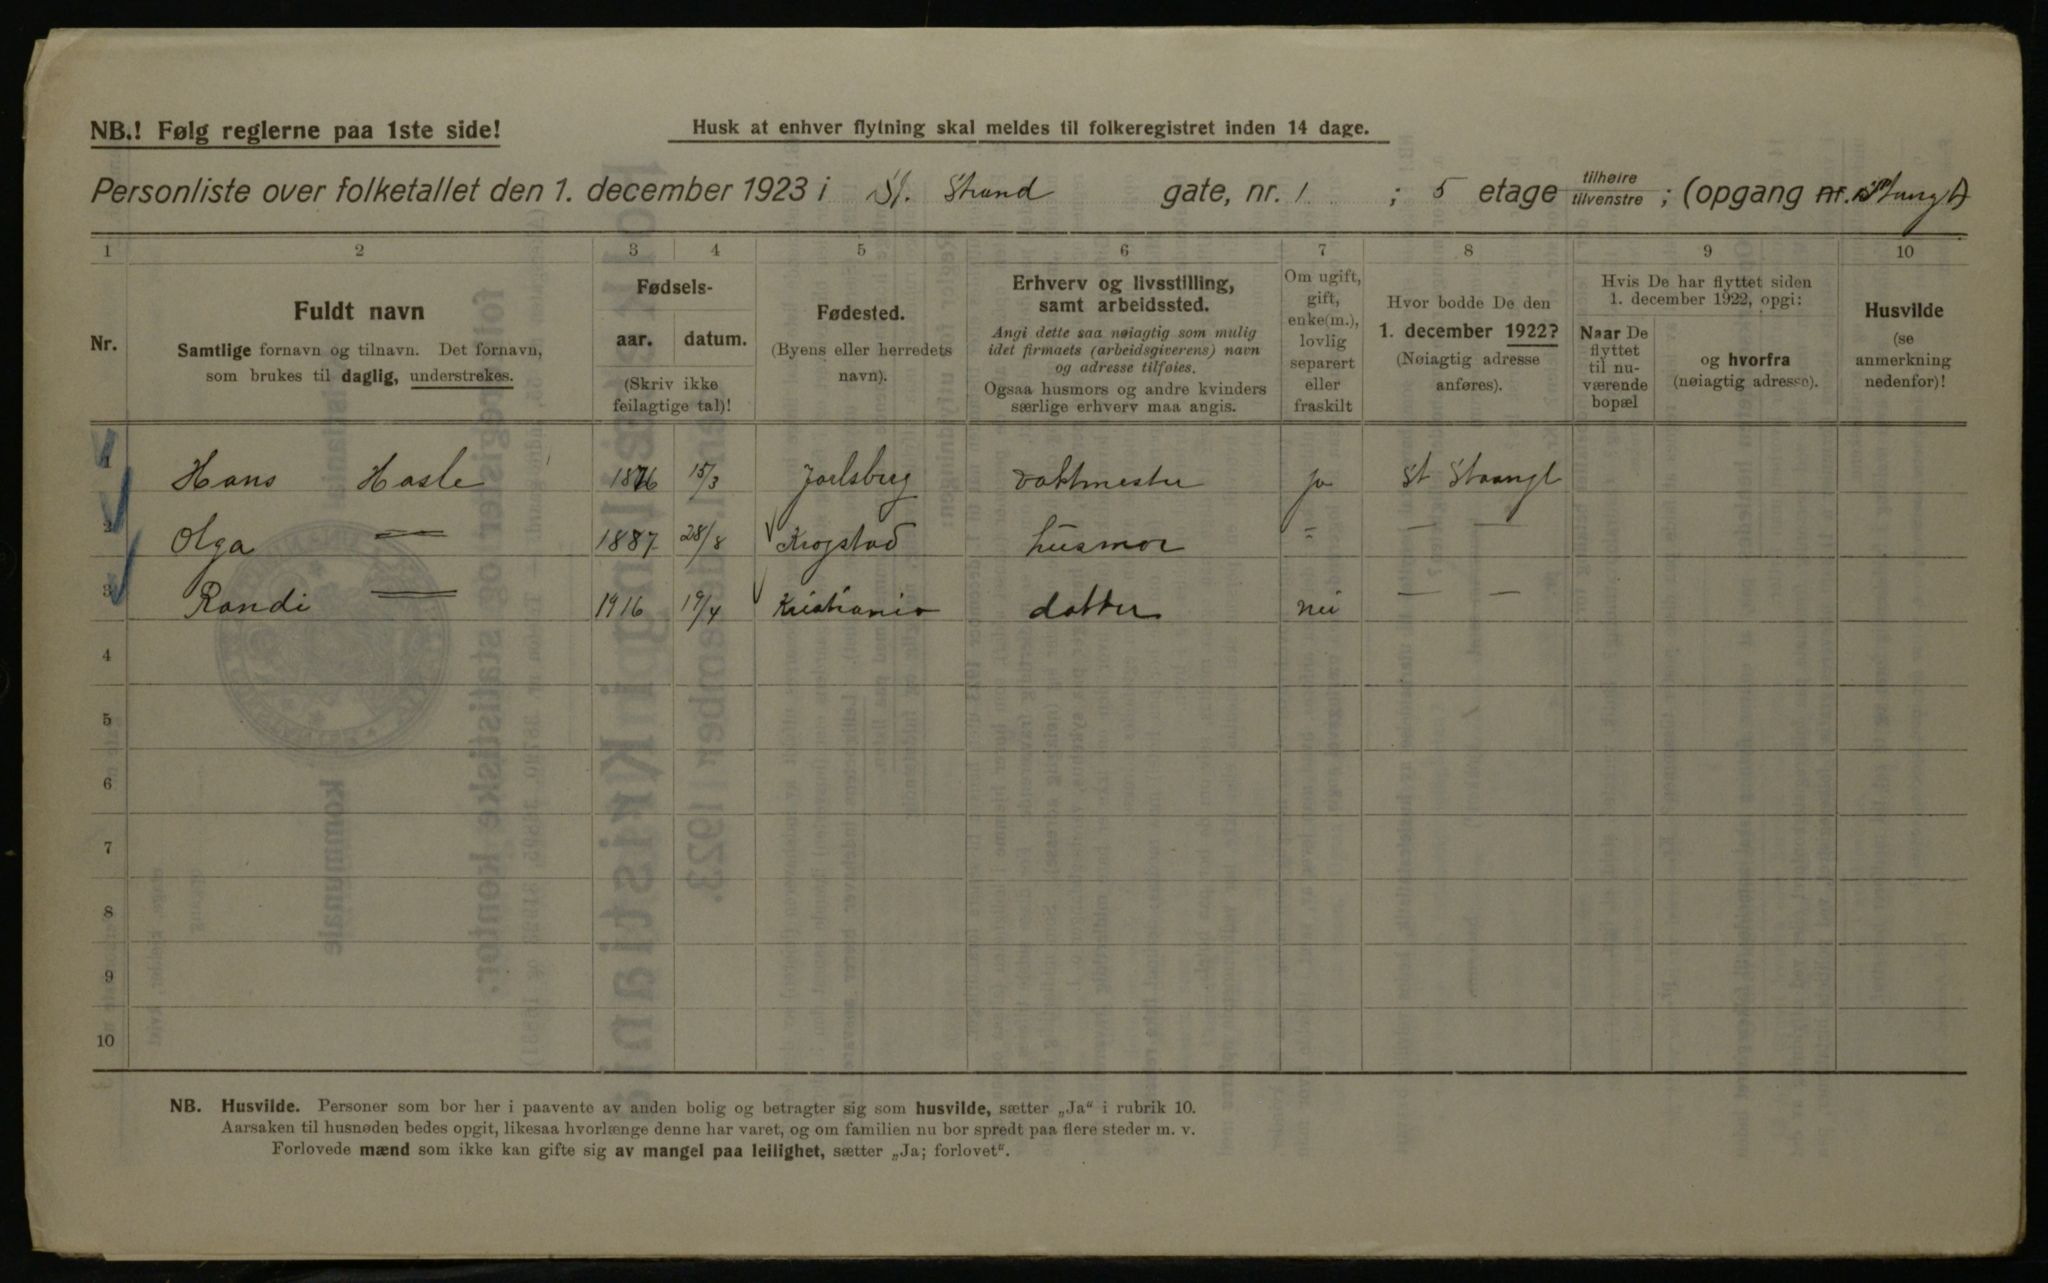 NB.! Følg reglerne paa 1ste side!
Husk at enhver flytning skal meldes til folkeregistret inden 14 dage.
Personliste over folketallet den 1. december 1923 i St. Strand gate, nr. 1 ; 5 etage tilhøire tilvenstre ; (opgang nr.
1 2 3 4 5 6 7 8 9 10
Nr.
Fuldt navn
Samtlige fornavn og tilnavn. Det fornavn,
som brukes til daglig, understrekes.
Fødsels-
aar. datum.
(Skriv ikke
feilagtige tal)!
Fødested.
(Byens eller herredets
navn).
Erhverv og livsstilling,
samt arbeidssted.
Angi dette saa nøiagtig som mulig
idet firmaets (arbeidsgiverens) navn
og adresse tilføies.
Ogsaa husmors og andre kvinders
særlige erhverv maa angis.
Om ugift,
gift,
enke(m.),
lovlig
separert
eller
fraskilt
Hvor bodde De den
1. december 1922?
(Nøiagtig adresse
anføres).
Hvis De har flyttet siden
1. december 1922, opgi:
Naar De
flyttet
til nu-
værende
bopæl
og hvorfra
(nøiagtig adresse).
Husvilde
(se
anmerkning
nedenfor)!
1 Hans Hasle 1876 15/3 Jarlsberg vaktmester ja St
2 Olga — 1887 28/8 Krogstad husmor " — —
3 Randi — 1916 19/4 Kristiania datter nei — —
4
5
6
7
8
9
10
NB. Husvilde. Personer som bor her i paavente av anden bolig og betragter sig som husvilde, sætter „Ja“ i rubrik 10.
Aarsaken til husnøden bedes opgit, likesaa hvorlænge denne har varet, og om familien nu bor spredt paa flere steder m. v.
Forlovede mænd som ikke kan gifte sig av mangel paa leilighet, sætter „Ja; forlovet“.